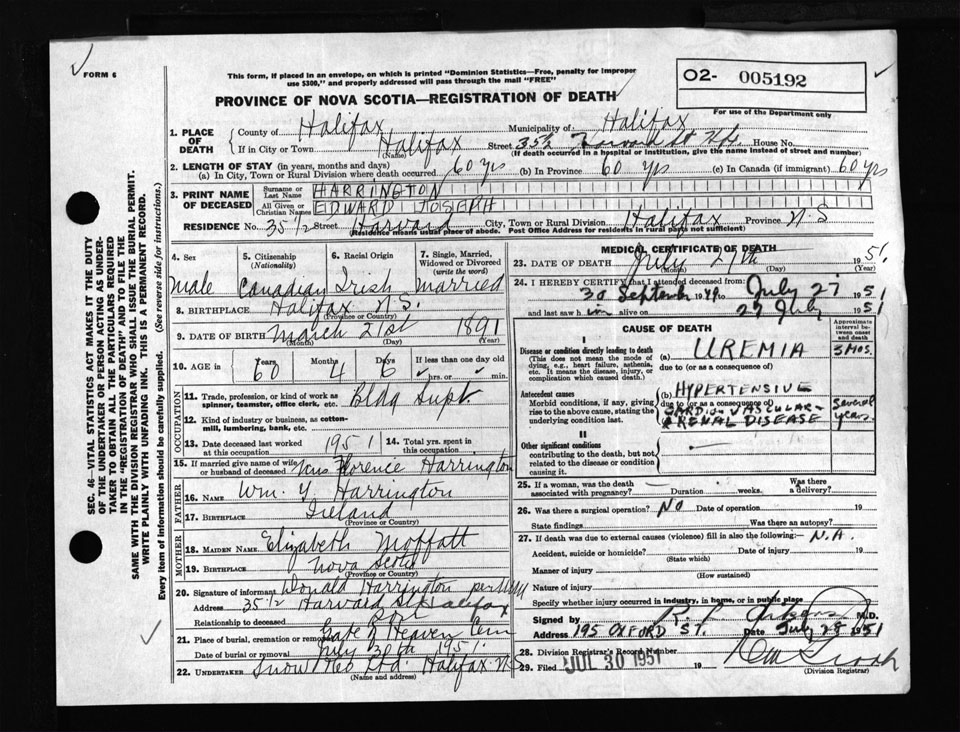 FORM 6
This form, if placed in an envelope, on which is printed "Dominion Statistics—Free, penalty for improper
use $300," and properly addressed will pass through the mail "FREE"
O2- 005192
For use of the Department only
PROVINCE OF NOVA SCOTIA—REGISTRATION OF DEATH
SEC. 46—VITAL STATISTICS ACT MAKES IT THE DUTY
OF THE UNDERTAKER OR PERSON ACTING AS UNDER-
TAKER TO OBTAIN ALL THE PARTICULARS REQUIRED
IN THE "REGISTRATION OF DEATH" AND TO FILE THE
SAME WITH THE DIVISION REGISTRAR WHO SHALL ISSUE THE BURIAL PERMIT.
WRITE PLAINLY WITH UNFADING INK. THIS IS A PERMANENT RECORD.
Every item of information should be carefully supplied. (See reverse side for instructions.)
1. PLACE OF DEATH County of Halifax Municipality of Halifax
If in City or Town Halifax Street 35½ House No.
(Name) (If death occurred in a hospital or institution, give the name instead of street and number)
2. LENGTH OF STAY (in years, months and days)
(a) In City, Town or Rural Division where death occurred 60 yrs (b) In Province 60 yrs (c) In Canada (if immigrant) 60 yrs
3. PRINT NAME OF DECEASED Surname or Last Name HARRINGTON
All Given or Christian Names EDWARD JOSEPH
RESIDENCE No. 35 1/2 Street Harvard City, Town or Rural Division Halifax Province N.S
(Residence means usual place of abode. Post Office Address for residents in rural parts not sufficient)
4. Sex 5. Citizenship (Nationality) 6. Racial Origin 7. Single, Married, Widowed or Divorced (write the word)
Male Canadian Irish Married
8. BIRTHPLACE Halifax N.S.
(Province or Country)
9. DATE OF BIRTH March 21st 1891
(Month) (Day) (Year)
10. AGE Years Months Days If less than one day old
60 4 6 hrs. or min.
OCCUPATION
11. Trade, profession, or kind of work as spinner, teamster, office clerk, etc. Bldg Supt
12. Kind of industry or business, as cotton-mill, lumbering, bank, etc.
13. Date deceased last worked at this occupation 1951 14. Total yrs. spent in this occupation
15. If married give name of wife or husband of deceased Florence Harrington
FATHER
16. NAME Wm. Y Harrington
17. BIRTHPLACE Ireland
(Province or Country)
MOTHER
18. MAIDEN NAME Elizabeth Moffatt
19. BIRTHPLACE Nova Scotia
(Province or Country)
20. Signature of informant Donald Harrington per
Address 35 1/2 Harvard St Halifax
Relationship to deceased Son
21. Place of burial, cremation or removal Gate of Heaven Cem
Date of burial or removal July 30th 1951.
22. UNDERTAKER Snow & Co Ltd. Halifax N.S
(Name and address)
MEDICAL CERTIFICATE OF DEATH
23. DATE OF DEATH July 27th 1951
(Month) (Day) (Year)
24. I HEREBY CERTIFY that I attended deceased from:
30 September 1949 to July 27 1951
and last saw him alive on 27 July 1951
CAUSE OF DEATH Approximate interval between onset and death
I
Disease or condition directly leading to death (a) UREMIA 3 MOS.
(This does not mean the mode of dying, e.g., heart failure, asthenia, etc. It means the disease, injury, or complication which caused death.) due to (or as a consequence of)
Antecedent causes (b) HYPERTENSIVE
Morbid conditions, if any, giving rise to the above cause, stating the underlying condition last. due to (or as a consequence of)
CARDIO-VASCULAR-RENAL DISEASE Several years
II
Other significant conditions
contributing to the death, but not related to the disease or condition causing it.
25. If a woman, was the death associated with pregnancy? — Duration weeks. Was there a delivery?
26. Was there a surgical operation? NO Date of operation 19
State findings Was there an autopsy?
27. If death was due to external causes (violence) fill in also the following:— N.A.
Accident, suicide or homicide? Date of injury 19
(State which)
Manner of injury
(How sustained)
Nature of injury
Specify whether injury occurred in industry, in home, or in public place
Signed by M.D.
Address 195 OXFORD ST. Date July 28 1951
28. Division Registrar's Record Number
29. Filed JUL 30 1951 19
(Division Registrar)